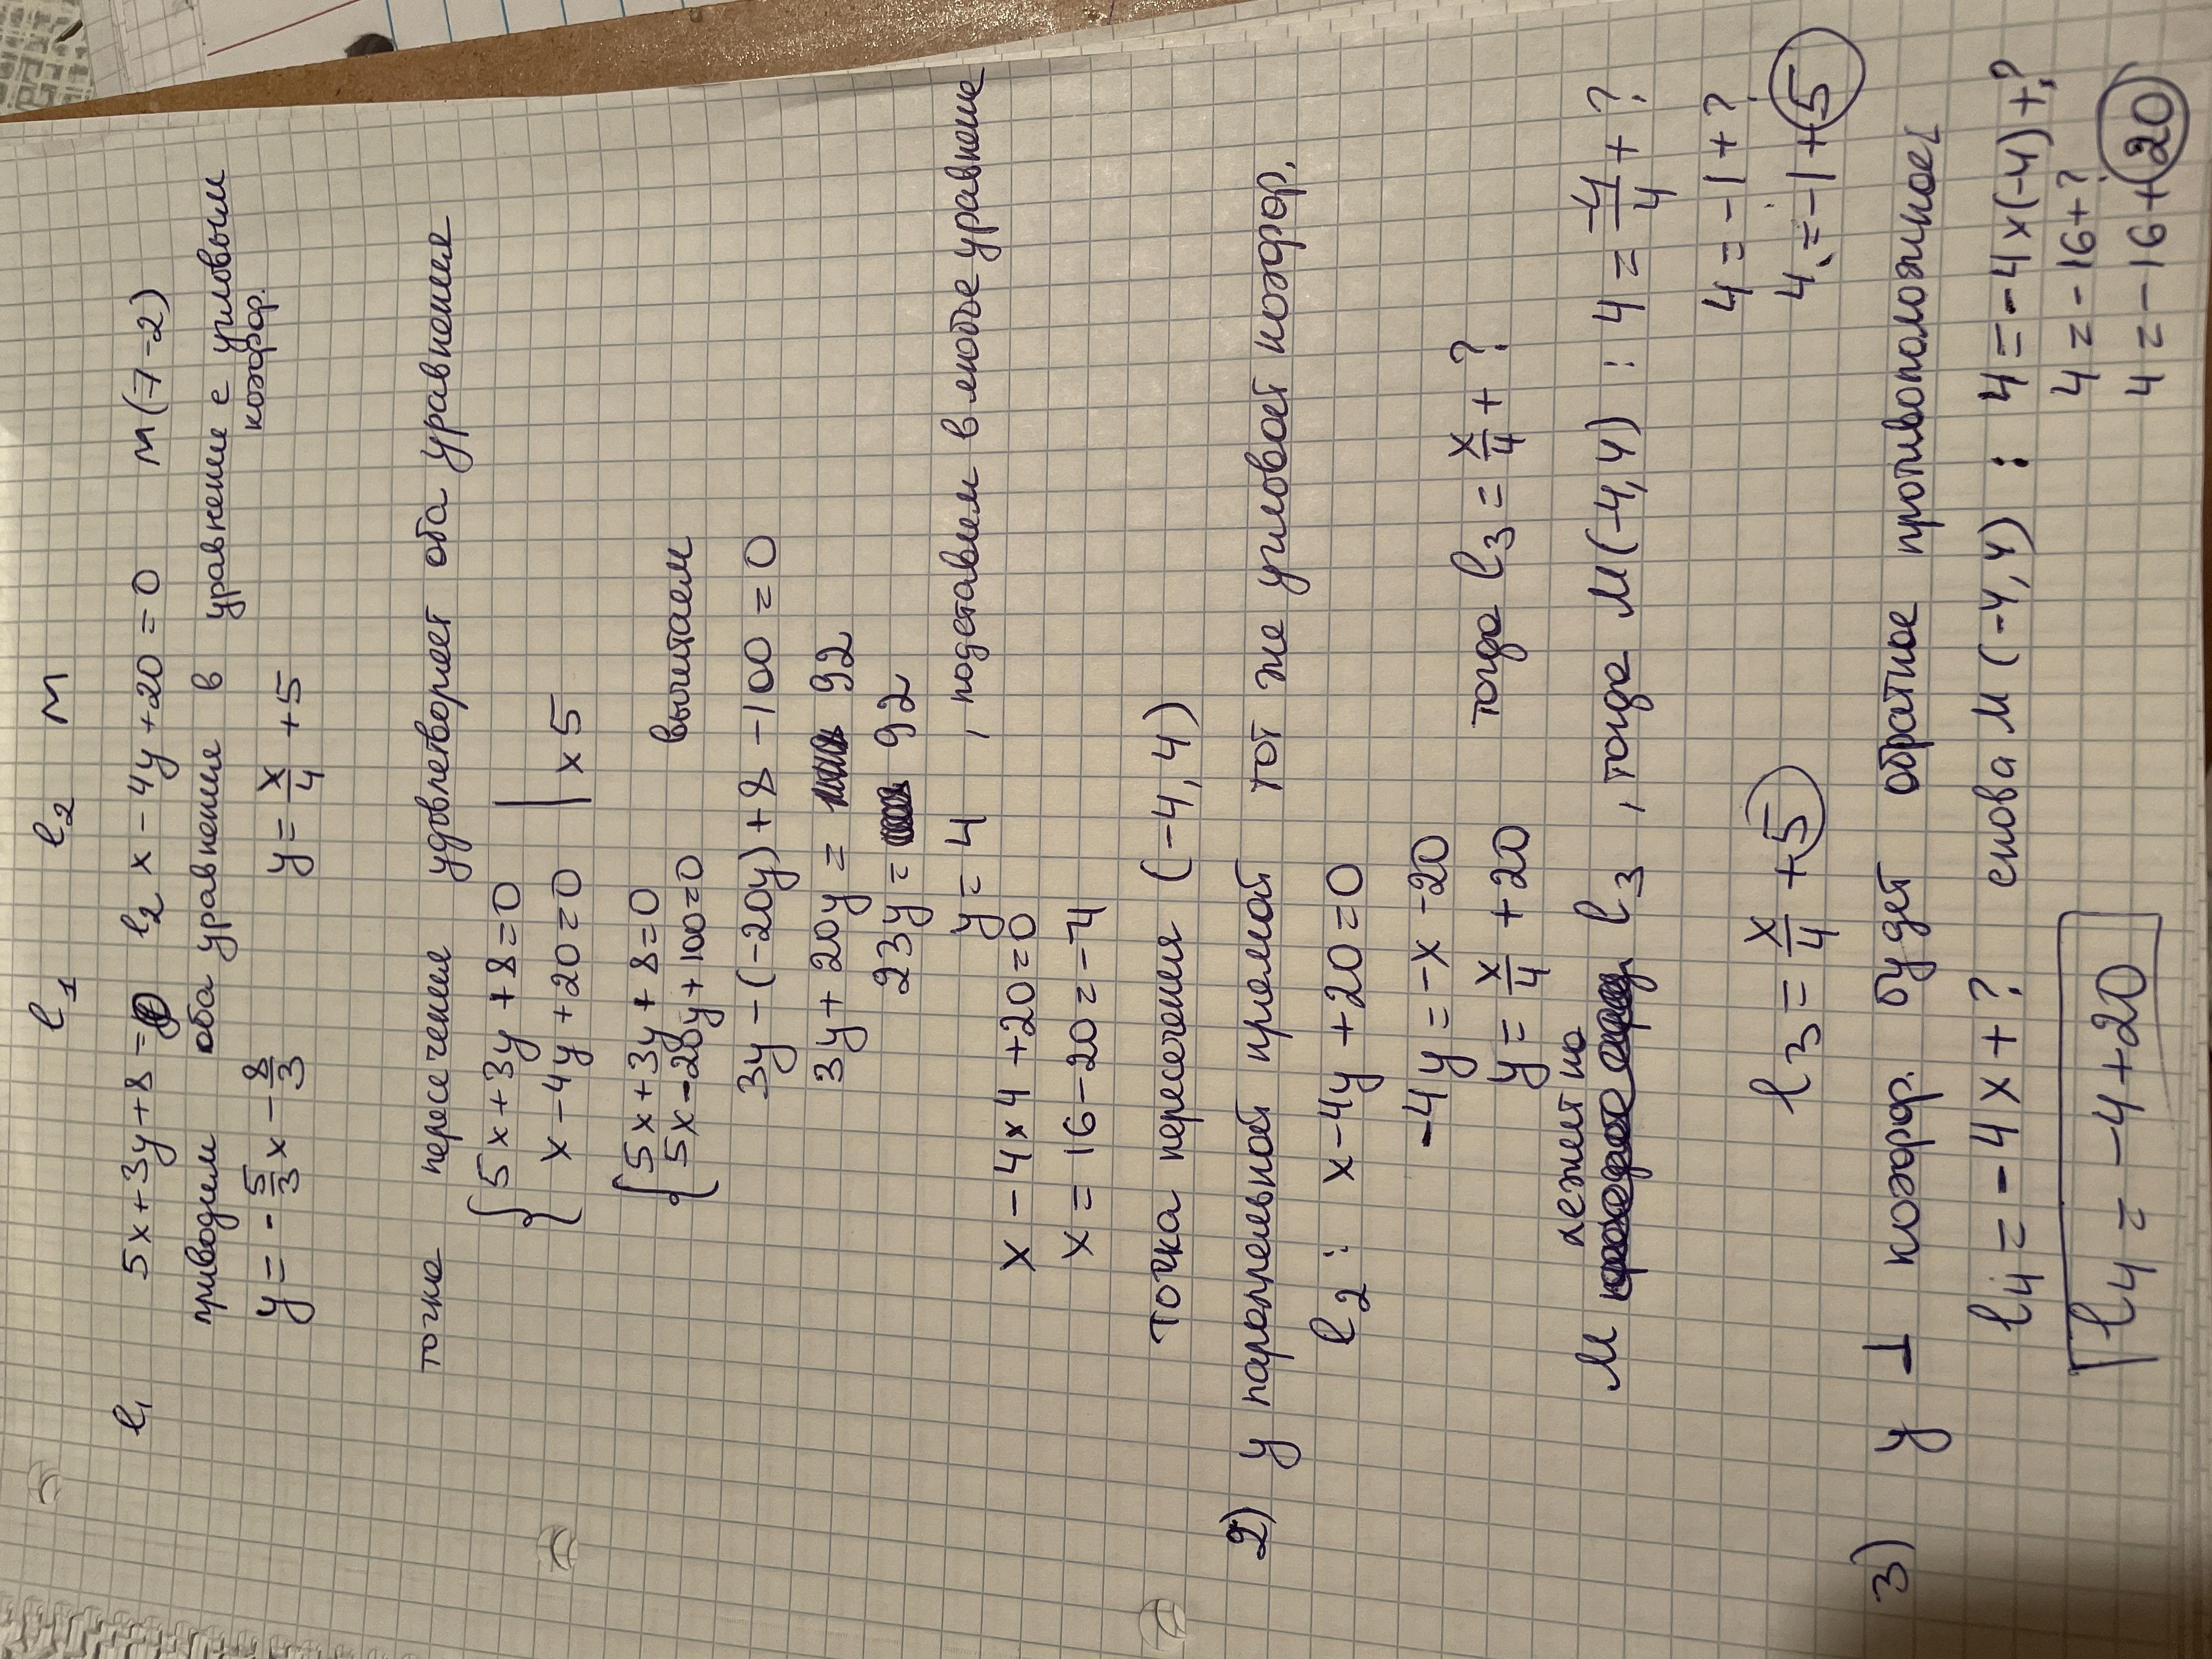 l₁ l₂ M
l₁ 5x+3y+8=0 l₂ x-4y+20=0 M(7-2)
приводим оба уравнение в уравнение с угловым коэфор.
y=-5/3x-8/3 y=x/4+5
точка пересечения удовлетворяет оба уравнения
{5x+3y+8=0
x-4y+20=0 | x5
{5x+3y+8=0
5x-20y+100=0 вычитаем
3y-(-20y)+8-100=0
3y+20y=92
23y=92
y=4, подставим в любое уравнение
x-4x4+20=0
x=16-20=-4
точка пересечения (-4,4)
2) у параллельной прямой тот же угловой коэфор.
l₂: x-4y+20=0
-4y=-x-20
y=x/4+20 тогда l₃=x/4+?
M лежит на l₃, тогда M(-4,4): 4=-4/4+?
4=-1+?
l₃=x/4+5 4=-1+5
3) у ⊥ коэфор. будет обратное противоположное
l₄=-4x+? снова M(-4,4): 4=-4x(-4)+?
4=-16+?
l₄=-4+20 4=-16+20